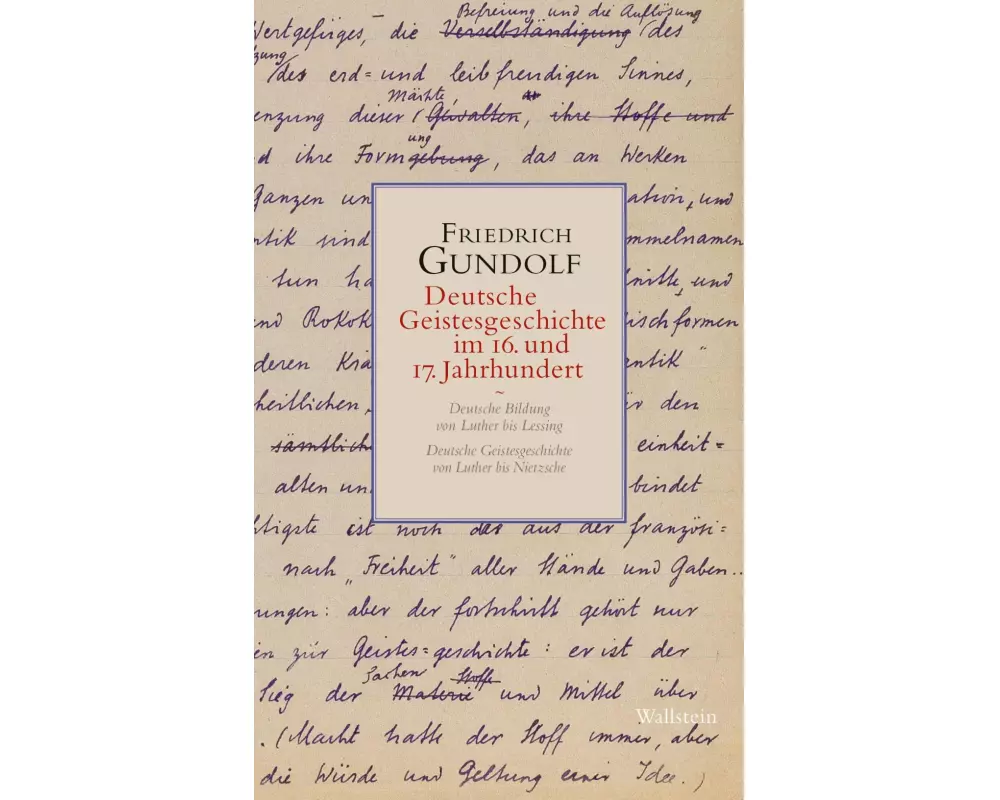 Befreiung und die Auflösung
Wertgefüges, die Verselbständigung des
des erd= und leibfreudigen Sinnes,
Mächte,
enzung dieser Gewalten, ihre Stoffe und
ung
d ihre Formgebung, das an Werken
Ganzen un
ation, und
ntik sind
mmelnamen
tun ha
nitte, und
nd Rokok
ischformen
deren Krä
entik"
heitlichen,
ür den
sämtlich
einheit=
alten un
bindet
FRIEDRICH
GUNDOLF
Deutsche
Geistesgeschichte
im 16. und
17. Jahrhundert
~
Deutsche Bildung
von Luther bis Lessing
Deutsche Geistesgeschichte
von Luther bis Nietzsche
htigste ist noch das aus der französi=
nach „Freiheit" aller Stände und Gaben..
rungen: aber der fortschritt gehört nur
en zur Geistes=geschichte: er ist der
Sachen Stoffe
Sieg der Materie und Mittel über
. (Macht hatte der Stoff immer, aber
die Würde und Geltung einer Idee.)
Wallstein